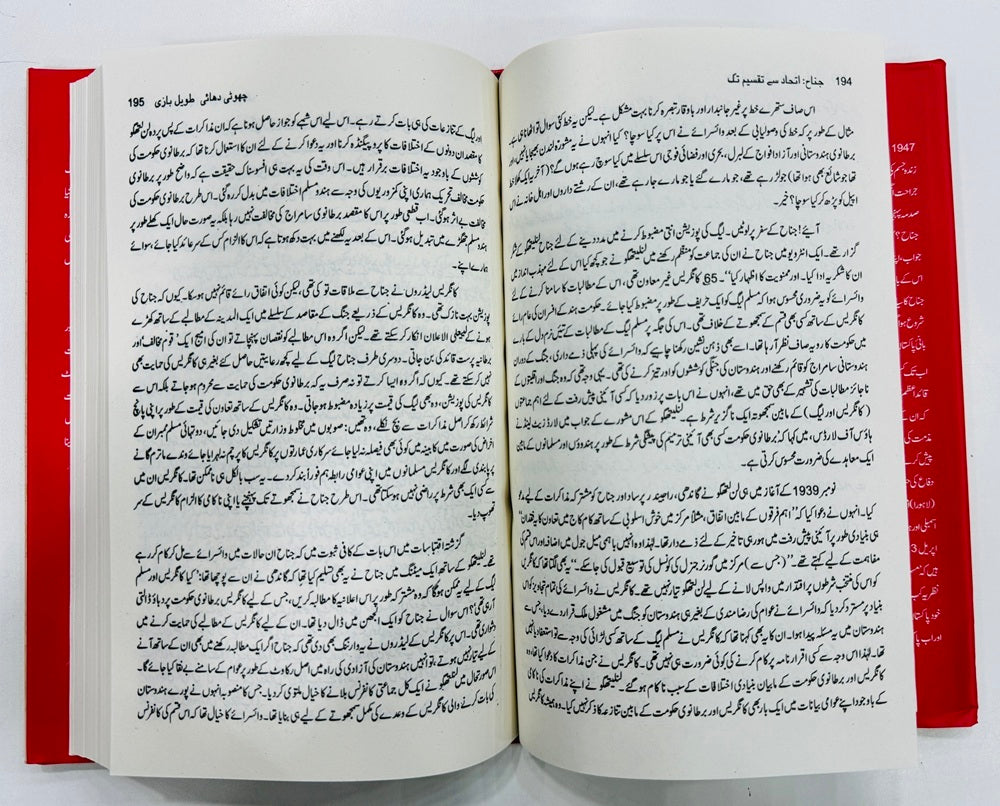 194 جناح: اتحاد سے تقسیم تک
اس صاف ستھرے خط پر غیر جانبدار اور باوقار تبصرہ کرنا بہت مشکل ہے۔ لیکن یہ خط کئی سوال تو اٹھاتا ہی ہے۔
مثال کے طور پر کہ خط کی وصولیابی کے بعد وائسرائے نے اس پر کیا سوچا؟ کیا انہوں نے یہ مشورہ لندن بھیجا یا نہیں؟ اور
برطانوی ہندوستانی اور آزاد افواج کے لبرل، بحری اور فضائی فوجی اس سلسلے میں کیا سوچ رہے ہوں گے؟ (آخر یہ ایک کھلا خط
تھا جو شائع بھی ہوا تھا) جو لڑ رہے تھے، جو مارے گئے یا جو مارے جا رہے تھے، ان کے رشتے داروں اور اہل خانہ نے اس
اپیل کو پڑھ کر کیا سوچا؟ خیر۔
آئیے! جناح کے سفر پر لوٹیں۔ لیگ کی پوزیشن اتنی مضبوط کرنے میں مدد دینے کے لئے جناح لنلیتھگو کے شکر
گزار تھے۔ ایک انٹرویو میں جناح نے ان کی جماعت کو منظم رکھنے میں لنلیتھگو نے جو کچھ کیا اس کے لئے مہذب انداز میں
ان کا شکریہ ادا کیا۔ اور ممنونیت کا اظہار کیا“۔ 65 کانگریس غیر معاون تھی، اس کے مطالبات کا سامنا کرنے کے لئے
وائسرائے کو یہ ضروری محسوس ہوا کہ مسلم لیگ کو ایک حریف کے طور پر مضبوط کیا جائے۔ حکومت ہند کے افسران کی عام رائے
کانگریس کے ساتھ کسی بھی قسم کے سمجھوتے کے خلاف تھی۔ اس کی جگہ پر مسلم لیگ کے مطالبات کے تئیں نرم دل کے بارے
میں حکومت کا رویہ صاف نظر آ رہا تھا۔ اسے بھی ذہن نشین رکھنا چاہیے کہ وائسرائے کی پہلی ذمے داری، جنگ کے دوران
ہندوستانی سامراج کو قائم رکھنے اور ہندوستان کی جنگی کوششوں کو اور تیز کرنے کی تھی۔ یہی وجہ تھی کہ وہ جنگ اور اقلیتوں کے
ناجائز مطالبات کی تشہیر کے بھی حق میں تھے، انہوں نے اس بات پر زور دیا کہ کسی آئینی پیش رفت کے لئے اہم جماعتوں
(کانگریس اور لیگ) کے مابین سمجھوتہ ایک ناگزیر شرط ہے۔ لنلیتھگو کے اس مشورے کے جواب میں لارڈ زیٹ لینڈ نے
ہاؤس آف لارڈس، میں کہا کہ برطانوی حکومت کسی بھی آئینی ترمیم کی پیشگی شرط کے طور پر ہندوؤں اور مسلمانوں کے مابین
ایک معاہدے کی ضرورت محسوس کرتی ہے۔
نومبر 1939 کے آغاز میں ہی لن لتھگو نے گاندھی، راجیندر پرساد اور جناح کو مشترکہ مذاکرات کے لیے مدعو
کیا۔ انہوں نے دعوا کیا کہ ”اہم فرقوں کے مابین اتفاق، مثلاً مرکز میں خوش اسلوبی کے ساتھ کام کاج میں تعاون کا یہ فقدان“
ہی بنیادی طور پر آئینی پیش رفت میں ہو رہی تاخیر کے لئے ذمے دار تھا۔ لہٰذا وہ انہیں باہمی میل جول میں اضافہ اور اس قسم کی
مفاہمت کے لیے کہتے تھے۔ ”(جس سے) مرکز میں گورنر جنرل کی کونسل کی توسیع قبول کی جا سکے“۔ یہ بھی لگتا تھا کہ کانگریس
کو اس کی منتخب شرطوں پر اقتدار میں واپس لانے کے لیے لن لتھگو تیار نہیں تھے۔ کانگریس نے وائسرائے کی تمام تجاویز کو اس
بنیاد پر مسترد کر دیا کہ وائسرائے نے عوام کی رضامندی کے بغیر ہی ہندوستان کو جنگ میں مشغول ملک قرار دے دیا، جس سے
ہندوستان میں یہ مسئلہ پیدا ہوا۔ ان کا یہ بھی کہنا تھا کہ کانگریس نے مسلم لیگ کے ساتھ کسی لڑائی کی وجہ سے تو استعفا دیا نہیں
تھا۔ لہٰذا اس وجہ سے کسی اقرار نامہ پر کام کرنے کی کوئی ضرورت ہی نہیں تھی۔ کانگریس نے جن مذاکرات کا دعوا کیا تھا، وہ
کانگریس اور برطانوی حکومت کے مابیان بنیادی اختلافات کے سبب ناکام ہو گئے۔ لنلیتھگو نے اپنے مذاکرات کی ناکامی
کے باوجود اپنے عوامی بیانات میں ایک بار بھی کانگریس اور برطانوی حکومت کے مابین تنازعہ کا ذکر نہیں کیا۔ وہ ہمیشہ کانگریس
چھوٹی دھائی طویل بازی 195
اور لیگ کے تنازعات کی ہی بات کرتے رہے۔ اس لیے اس شبہے کو جواز حاصل ہوتا ہے کہ ان مذاکرات کے پس پردہ لن لتھگو
کا مقصد ان دونوں کے اختلافات کا پروپیگنڈہ کرنا اور یہ دعوا کرنے کے لئے ان کا استعمال کرنا تھا کہ برطانوی حکومت کی
کوششوں کے باوجود یہ اختلافات برقرار ہیں۔ اس وقت کی یہ بہت ہی افسوسناک حقیقت ہے کہ واضح طور پر برطانوی
حکومت مخالف تحریک ہماری اپنی کمزوریوں کی وجہ سے ہندو مسلم اختلافات میں بدل کر رہ گئی۔ اس طرح برطانوی حکومت کی
مخالفت بے اثر ہو گئی۔ اب قطعی طور پر اس کا مقصد برطانوی سامراج کی مخالفت نہیں رہا بلکہ یہ صورت حال ایک کھلے طور پر
ہندو مسلم جھگڑے میں تبدیل ہو گئی۔ اس کے بعد یہ لکھنے میں بہت دکھ ہوتا ہے کہ اس کا الزام کس کے سر عائد کیا جائے، سوائے
ہمارے اپنے۔
کانگریس لیڈروں نے جناح سے ملاقات تو کی تھی، لیکن کوئی اتفاق رائے قائم نہیں ہو سکا۔ کیوں کہ جناح کی
پوزیشن بہت نازک تھی۔ وہ کانگریس کے ذریعے جنگ کے مقاصد کے سلسلے میں ایک المدینہ کے مطالبے کے ساتھ کھڑے
ہونے کے لیے علی الاعلان انکار کر سکتے تھے۔ لیکن اگر وہ اس مطالبے کو نقصان پہنچاتے تو ان کی امیج ایک ’قوم مخالف اور
برطانیہ پرست‘ قائد کی بن جاتی۔ دوسری طرف جناح لیگ کے لیے کچھ رعایتیں حاصل کئے بغیر ہی کانگریس کی حمایت بھی
نہیں کر سکتے تھے۔ کیوں کہ اگر وہ ایسا کرتے تو نہ صرف یہ کہ برطانوی حکومت کی حمایت سے محروم ہو جاتے بلکہ اس سے
کانگریس کی پوزیشن، وہ بھی لیگ کی قیمت پر زیادہ مضبوط ہو جاتی۔ وہ کانگریس کے ساتھ تعاون کی قیمت کے طور پر اپنی پانچ
شرائط رکھ کر اصل مذاکرات سے بچ نکلے، وہ تھیں: صوبوں میں مخلوط وزارتیں تشکیل دی جائیں، دو تہائی مسلم ممبران کے
اعراض کی صورت میں کابینہ میں کوئی بھی فیصلہ نہ لیا جائے سرکاری عمارتوں پر کانگریس کا پرچم نہ لہرایا جائے وندے ماترم گانے
پر پابندی لگے اور کانگریس مسلمانوں میں اپنی عوامی رابطہ مہم فوراً بند کر دے۔ یہ سب بالکل ہی ناممکن تھا۔ کانگریس ان میں
سے کسی ایک بھی شرط پر راضی نہیں ہو سکتی تھی۔ اس طرح جناح نے سمجھوتے تک پہنچنے یا اپنی ناکامی کا الزام کانگریس کے سر
تھوپ دیا۔
گزشتہ اقتباسات میں اس بات کے کافی ثبوت ہیں کہ جناح ان حالات میں وائسرائے سے مل کر کام کر رہے
تھے۔ لنلیتھگو کے ساتھ ایک میٹنگ میں جناح نے یہ بھی تسلیم کیا تھا کہ گاندھی نے ان سے پوچھا تھا: ”کیا کانگریس اور مسلم
لیگ کے لیے یہ ممکن ہو گا کہ وہ مشترکہ طور پر اس اعلانیہ کا مطالبہ کریں، جس کے لیے کانگریس برطانوی حکومت پر دباؤ ڈالتی
آ رہی تھی؟ اس سوال نے جناح کو ایک الجھن میں ڈال دیا تھا۔ ان کے لیے کانگریس کے مطالبے کی حمایت کرنے میں
دشواری تھی۔ اس پر کانگریس کے لیڈروں نے یہ وارننگ بھی دی تھی کہ جناح اگر ایک مطالبہ رکھنے میں بھی ان کے ساتھ آنے
کے لیے تیار نہیں ہوتے، تو انہیں ہندوستان کی آزادی کی راہ میں اصل رکاوٹ کے طور پر عوام کے سامنے بے نقا کیا جائے گا۔
اس صورتحال میں لنلیتھگو نے ایک کل جماعتی کانفرنس بلانے کا خیال ملتوی کر دیا۔ جس کا منصوبہ انہوں نے پورے ہندوستان
کی بات کرنے والی کانگریس کے وعدے کی مکمل سمجھوتے کے لیے ہی بنایا تھا۔ وائسرائے کا خیال تھا کہ اس قسم کی کانفرنس
1947